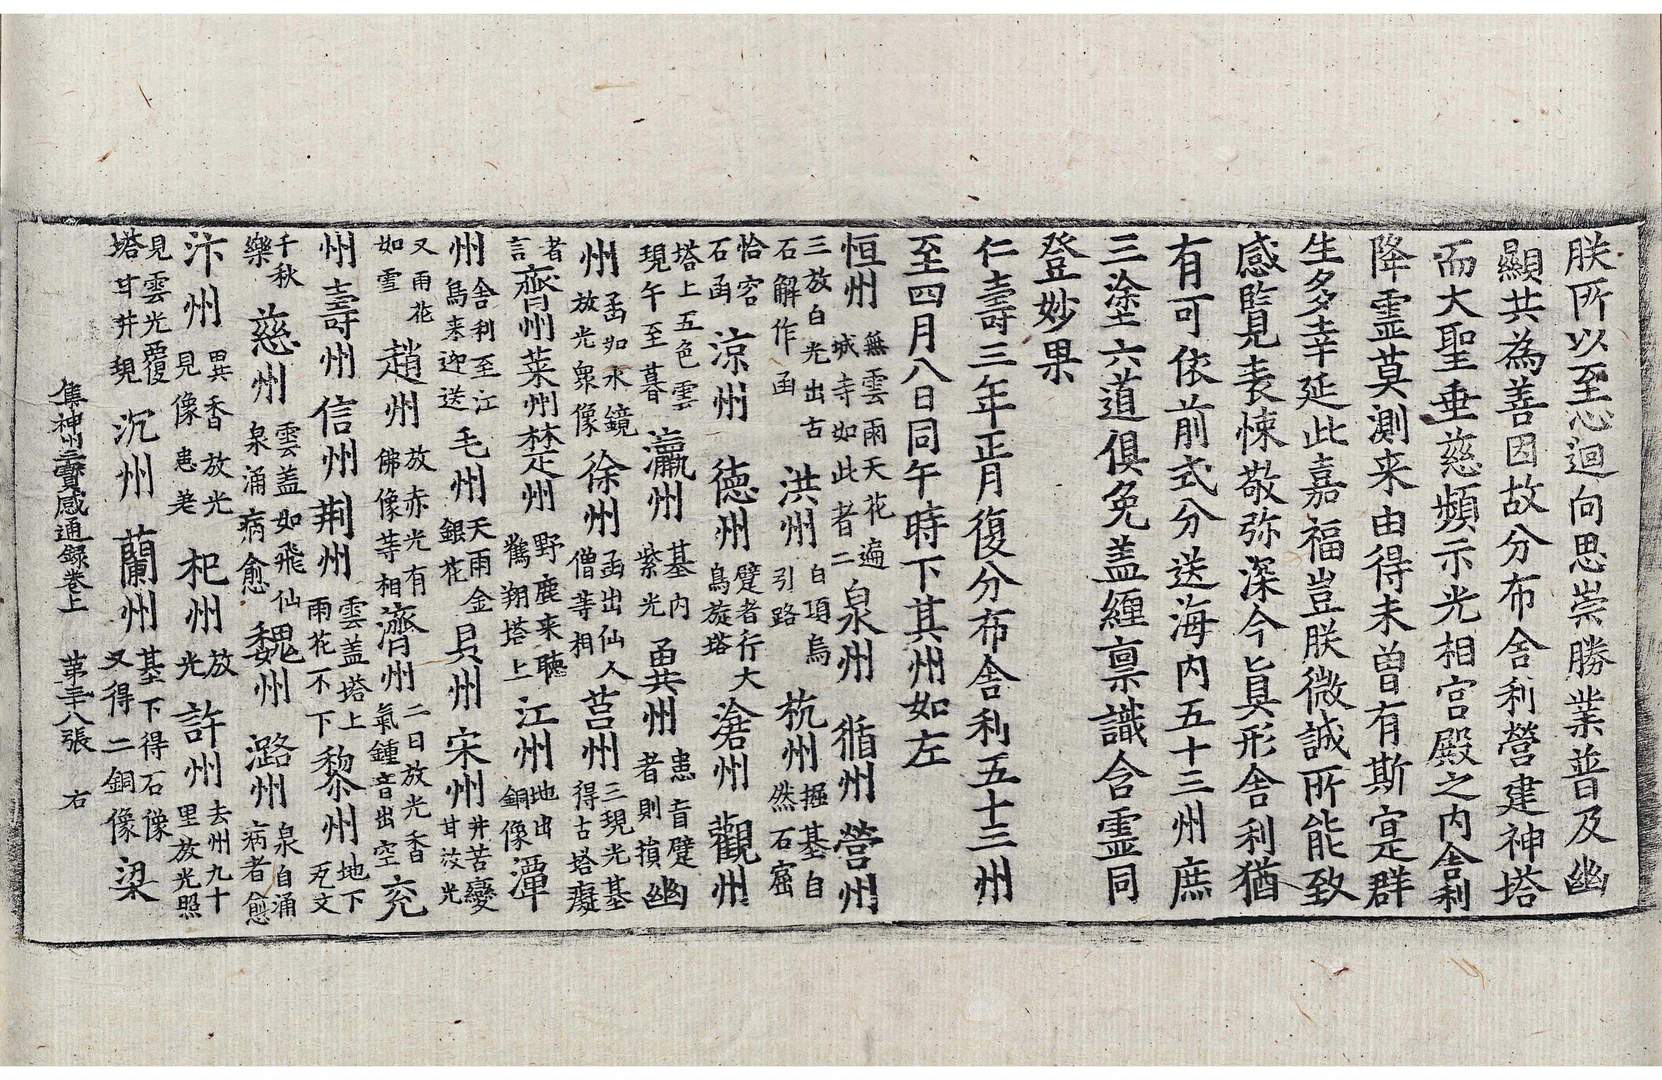 朕所以至心迴向思崇勝業普及幽
顯共為善因故分布舍利營建神塔
而大聖垂慈頻示光相宮殿之內舍利
降霊莫測来由得未曽有斯寔群
生多幸延此嘉福豈朕微誠所能致
感覧表悚敬弥深今旨真形舍利猶
有可依前式分送海内五十三州庶
三塗六道俱免盖纏禀識含霊同
登妙果
仁壽三年正月復分布舍利五十三州
至四月八日同午時下其州如左
恒州 無雲雨天花遍城寺如此者二 泉州 循州 營州
三放白光出古石解作函 洪州 白項烏引路 杭州 掘基自然石窟
恰容石函 涼州 徳州 躄者行大鳥旋塔 滄州 觀州
塔上五色雲現午至暮 瀛州 基内紫光 兾州 患盲躄者則損 幽
州 函如水鏡放光衆像 徐州 函出仙人僧等相 莒州 三現光基得古塔癡
者言 齊州 莱州 楚州 野鹿来聴鶴翔塔上 江州 地出銅像 潭
州 舍利至江鳥来迎送 毛州 天雨金銀花 貝州 宋州 井苦變甘汥光
又雨花如雪 趙州 放赤光有佛像等相 濟州 二日放光香氣鍾音出空 兖
州 壽州 信州 荆州 雲盖塔上雨花不下 黎州 地下𤬪文
千秋樂 慈州 雲盖如飛仙泉涌病愈 魏州 潞州 泉自涌病者愈
汴州 異香放光見像患差 杞州 放光 許州 去州九十里放光照
見雲光覆塔甘井現 沉州 蘭州 基下得石像又得二銅像 梁
集神州三寳感通録巻上 第三十八張 右